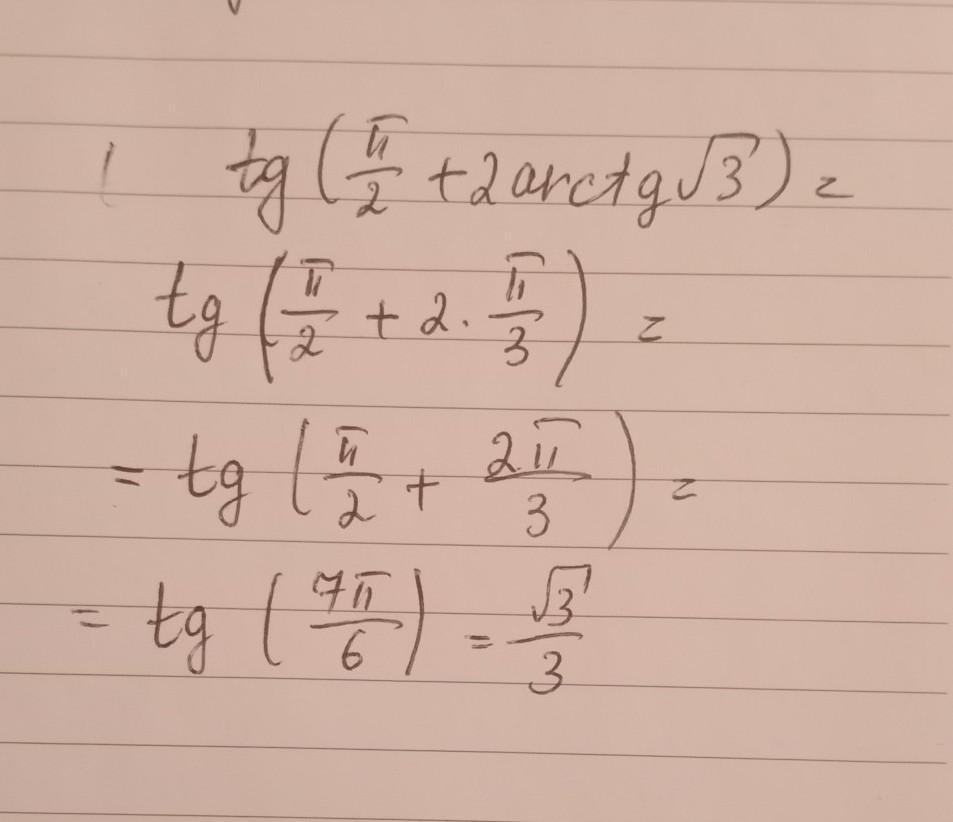 tg (π/2 + 2 arctg √3) =
tg (π/2 + 2 · π/3) =
= tg (π/2 + 2π/3) =
= tg (7π/6) = √3/3